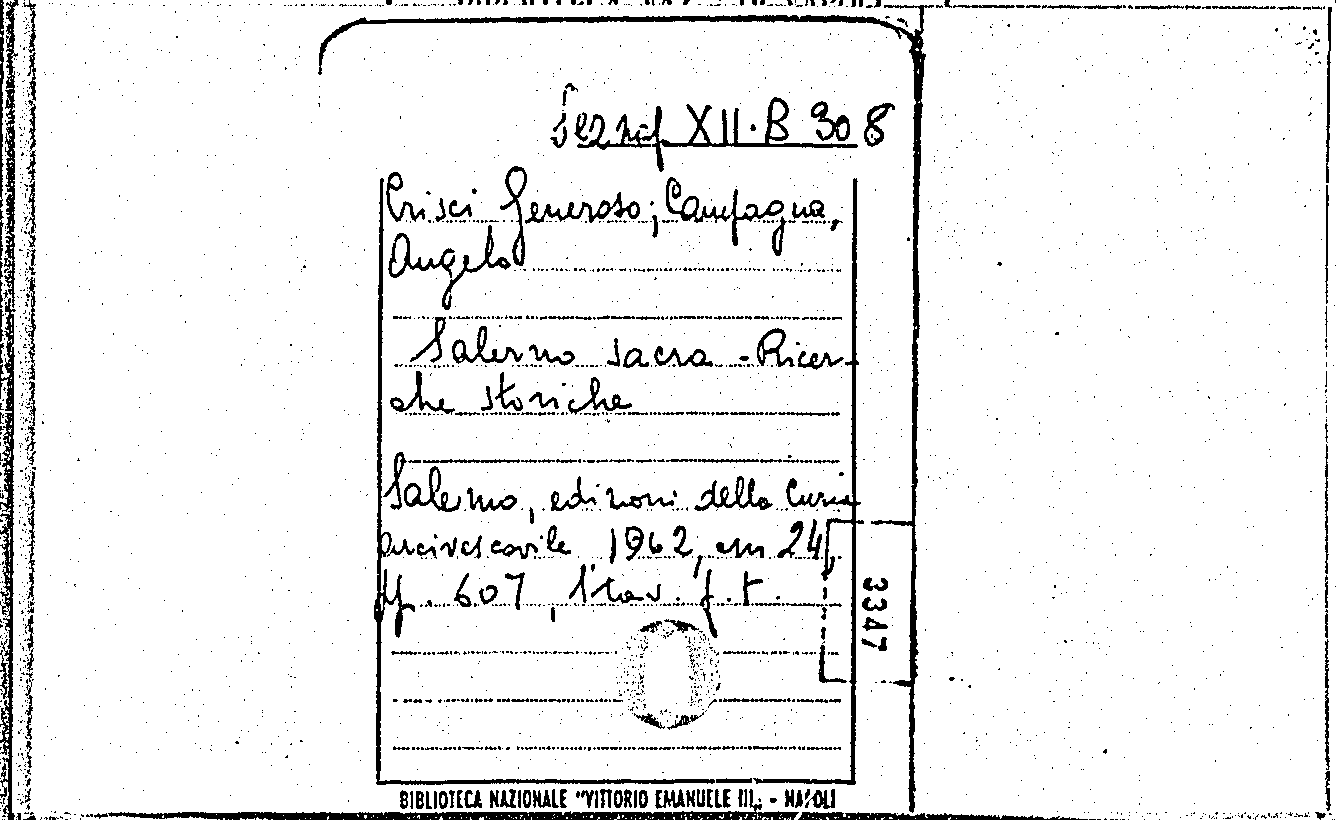 Sez nap XII.B 308
Crisci Generoso; Campagna,
Angelo
Salerno sacra - Ricer-
che storiche
Salerno, edizioni della Curia
arcivescovile 1962, cm 24,
pp. 607, 1 tav. f. t.
3347
BIBLIOTECA NAZIONALE "VITTORIO EMANUELE III" - NAPOLI